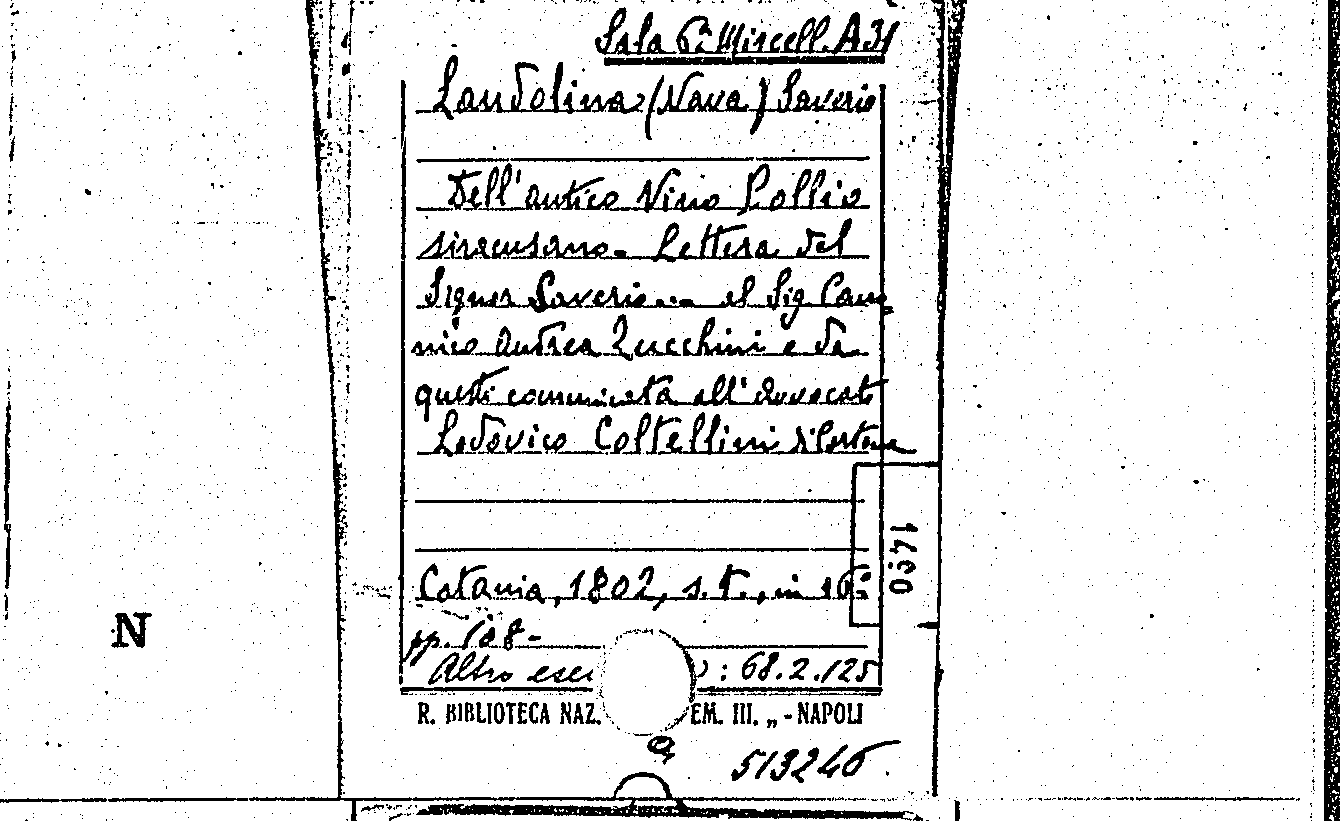 Sala 6ª Miscell. A31
Landolina (Nava) Saverio
Dell'antico Vino Pollio
siracusano. Lettera del
Signor Saverio... al Sig Cano
nico Andrea Zucchini e da
questi comunicata all'Avvocato
Lodovico Coltellini di Cortona
0571
Catania, 1802, s. T., in 16º
pp. 108-
Altro ese : 68.2.125
R. BIBLIOTECA NAZ. EM. III. „ - NAPOLI
N
513246